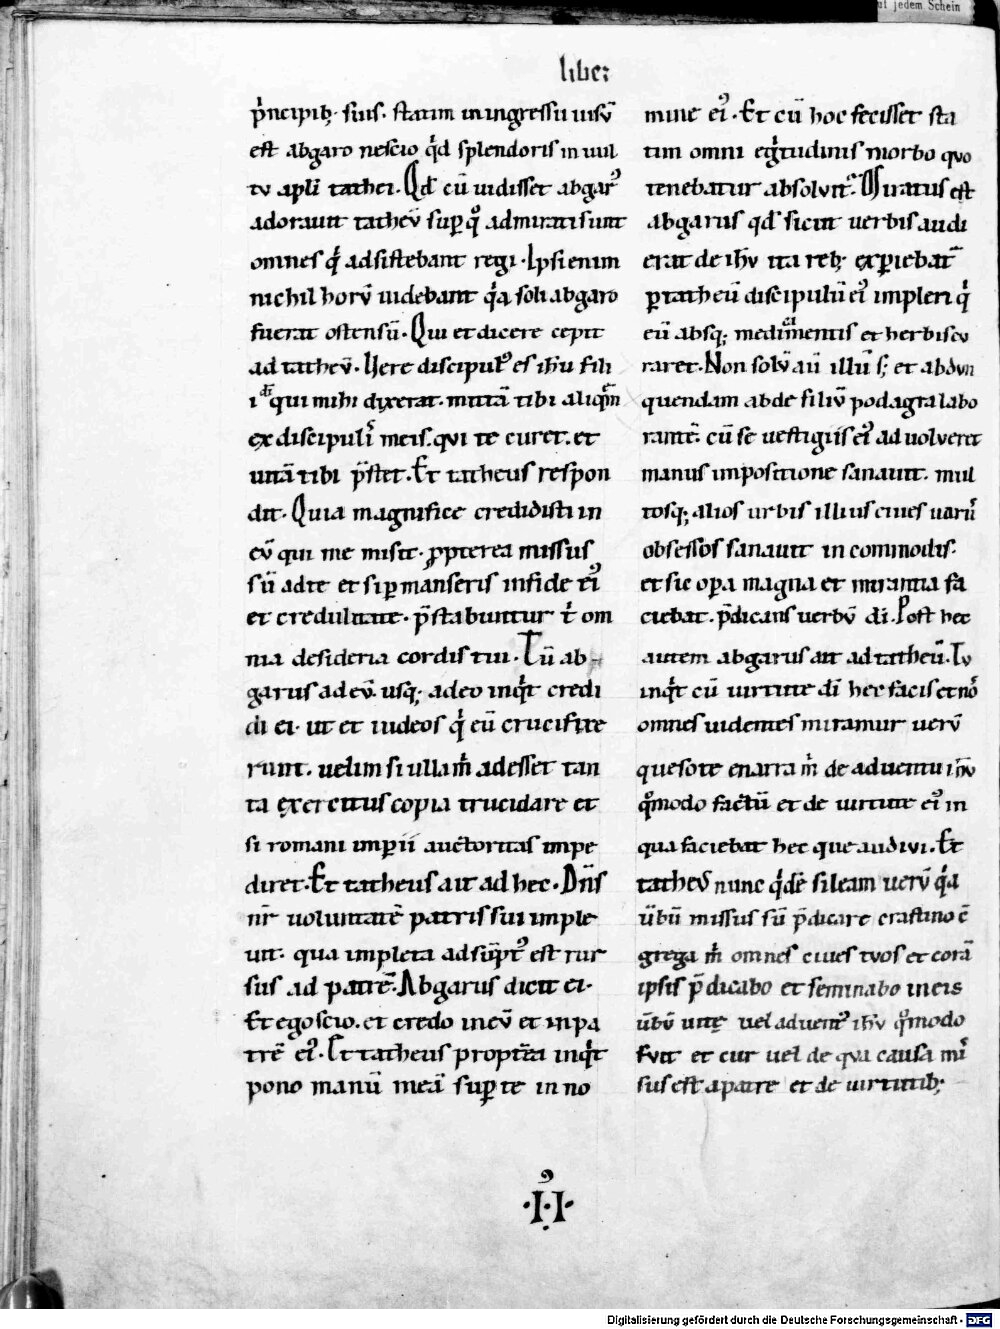 ut jedem Schein
liber
p̉ncipib; suis. statim in ingressu uisū
est abgaro nescio qͥd splendoris in uul
tu apli tathei. Qd cū uidisset abgarꝰ
adorauit tatheū suꝑ qͦ admirati sunt
omnes qͥ adsistebant regi. Ipsi enim
nichil horū uidebant qͥa soli abgaro
fuerat ostensū. Qui et dicere cepit
ad tatheū. Uere discipulꝰ es ihū fili
i di qui mihi dixerat. mittā tibi aliqͣm
ex discipulis meis. qui te curet. et
uitā tibi p̄stet. Et tatheus respon
dit. Quia magnifice credidisti in
eū qui me misit. ꝓpterea missus
sū ad te et si ꝑmanseris in fide eiꝰ
et credulitate. p̄stabuntur tͥ om
nia desideria cordis tui. Tū ab
garus ad eū. usq; adeo inqͥt credi
di ei. ut et iudeos qͥ eū crucifixe
runt. uelim si ulla mͥ adesset tan
ta exercitus copia trucidare et
si romani imꝑii auctoritas impe
diret. Et tatheus ait ad hec. Dn̄s
nr̄ uoluntatē patris sui imple
uit. qua impleta adsūptꝰ est rur
sus ad patrē. Abgarus dicit ei.
Et ego scio. et credo in eū et in pa
trē eiꝰ. Et tatheus propt̄ea inqͥt
pono manū meā suꝑ te in no
mine eiꝰ. Et cū hoc fecisset sta
tim omni egͥtudinis morbo quo
tenebatur absoluit᷑. Miratus est
abgarus qd sicut uerbis audi
erat de ihū ita reb; exꝑiebat᷑
ꝑ tatheū discipulū eiꝰ impleri qͥ
eū absq; medicamentis et herbis cu
raret. Non solū aū illū s; et abdun
quendam abde filiū podagra labo
rantē. cū se uestigiis eiꝰ aduolueret
manus impositione sanauit. mul
tosq; alios urbis illius ciues uariis
obsessos sanauit incommodis.
et sic oꝑa magna et miranda fa
ciebat. p̄dicans uerbū di. Post hec
autem abgarus ait ad tatheū. Tu
inqͥt cū uirtute di hec facis et nos
omnes uidentes miramur uerū
queso te enarra mͥ de aduentu ihū
qͦmodo factū et de uirtute eiꝰ in
qua faciebat hec que audiui. Et
tatheus nunc qͥdē sileam uerū qͥa
ūbū missus sū p̄dicare crastino c̄
grega mͥ omnes ciues tuos et corā
ipsis p̄dicabo et seminabo in eis
ūbū uitę uel aduentꝰ ihū qͦmodo
fuit et cur uel de qua causa mis
sus est a patre et de uirtutib;
·II·
Digitalisierung gefördert durch die Deutsche Forschungsgemeinschaft - DFG